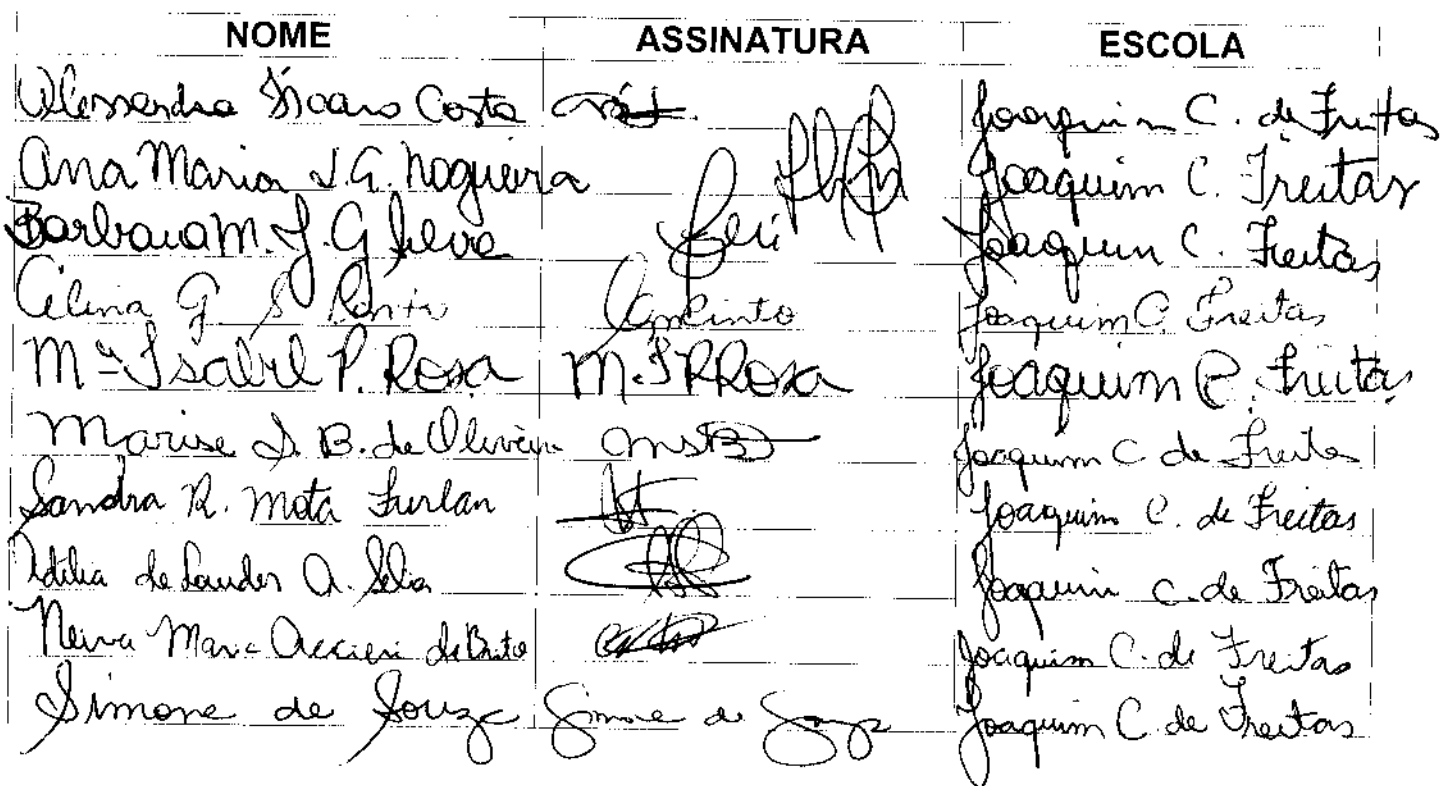 NOME ASSINATURA ESCOLA
Alessandra Costa Joaquim C. de Freitas
Ana Maria J. G. Nogueira Joaquim C. Freitas
Barbara M. J. G Silva Joaquim C. Freitas
Celina G S Joaquim C. Freitas
Mª Isabel P. Rosa M. I P Rosa Joaquim C. Freitas
Marise S. B. de Oliveira Joaquim C de Freitas
Sandra R. Mota Furlan Joaquim C. de Freitas
de A. Joaquim C. de Freitas
Neiva Maria de Brito Joaquim C. de Freitas
Simone de Souza Simone de Souza Joaquim C. de Freitas